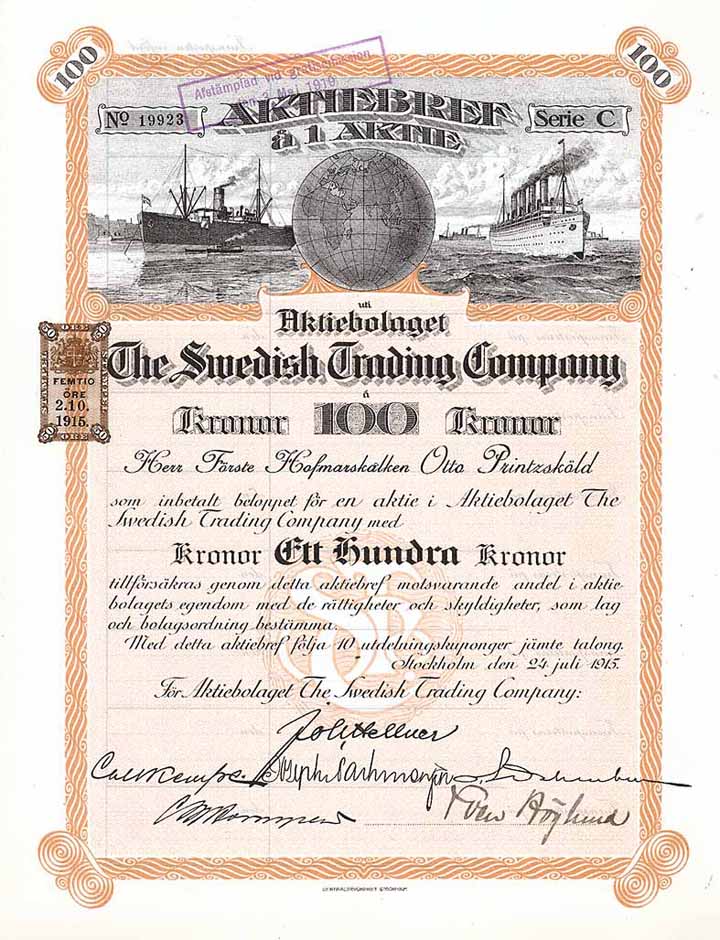 100
100
Afstämplad vid gratisemission
den 3 Maj 1919
No 19923
AKTIEBREF
Serie C
à 1 AKTIE
uti
Aktiebolaget
The Swedish Trading Company
à
Kronor 100 Kronor
50 ÖRE 50
FEMTIO
ÖRE
2.10.
1915.
50 ÖRE 50
Herr Förste Hofmarskalken Otto Printzsköld
som inbetalt beloppet för en aktie i Aktiebolaget The
Swedish Trading Company med
Kronor Ett Hundra Kronor
tillförsäkras genom detta aktiebref motsvarande andel i aktie-
bolagets egendom med de rättigheter och skyldigheter, som lag
och bolagsordning bestämma.
Med detta aktiebref följa 10 utdelningskuponger jämte talong.
Stockholm den 24 juli 1915.
För Aktiebolaget The Swedish Trading Company:
Joh Hellner
Carl Kempe
Joseph Nachmanson
Sven Höglund
CENTRALTRYCKERIET STOCKHOLM